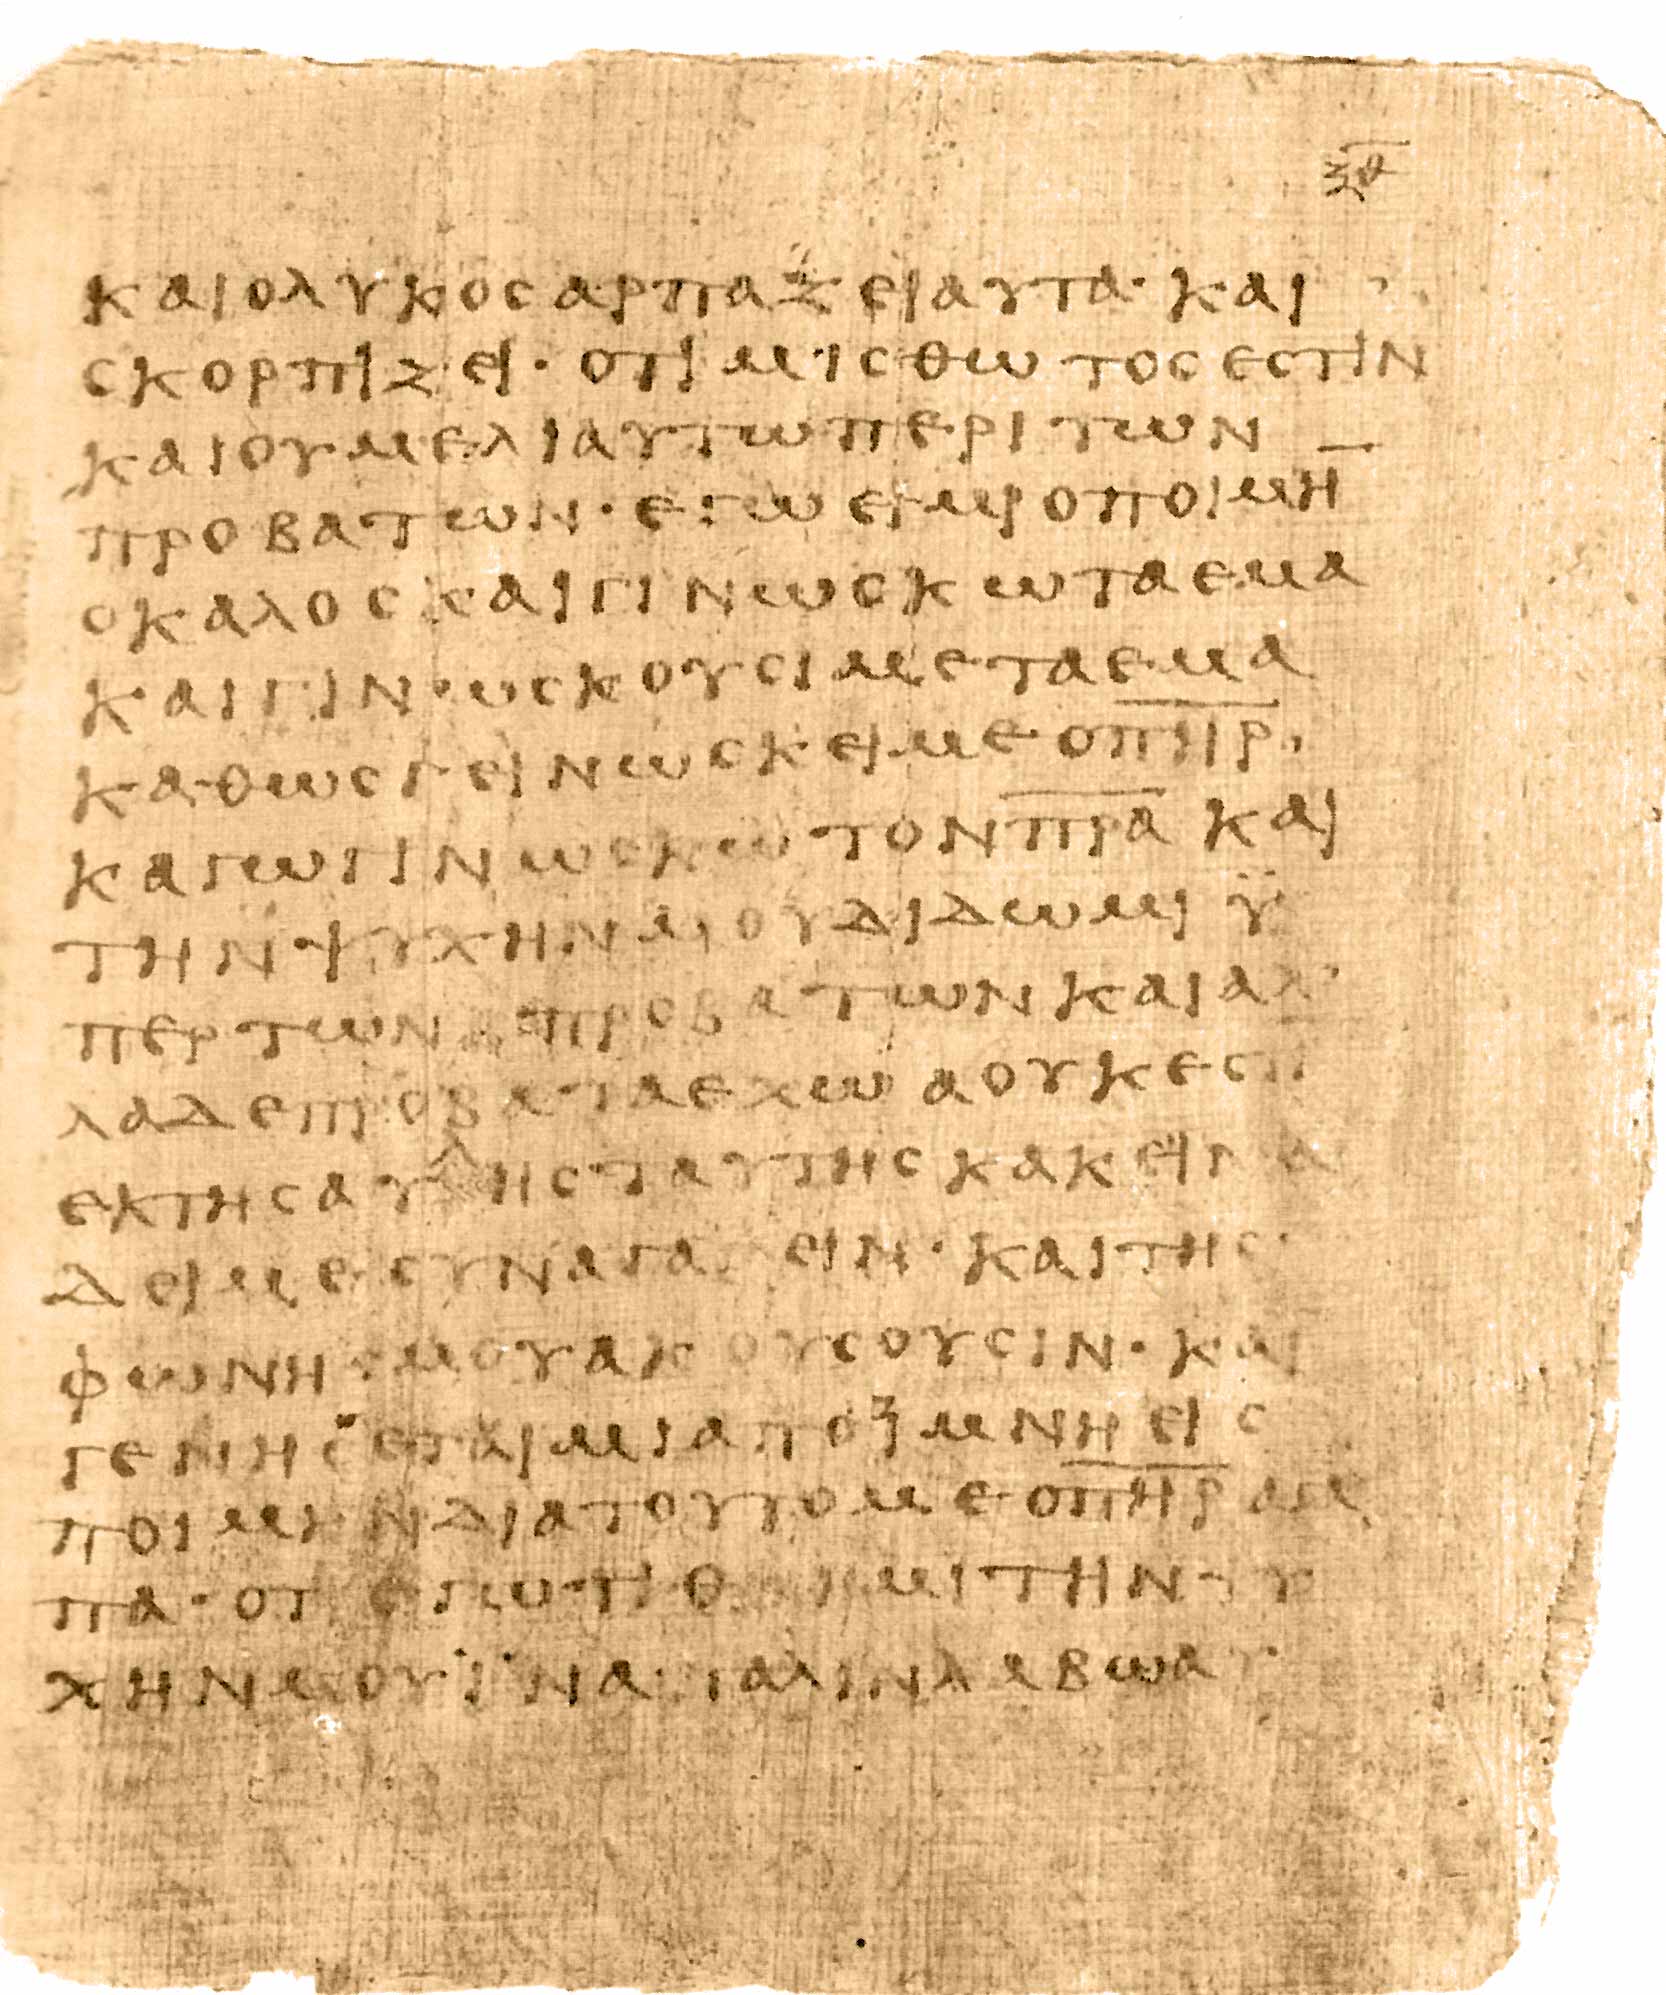 ξθ
και ο λυκος αρπαζει αυτα· και
σκορπιζει· οτι μισθωτος εστιν
και ου μελι αυτω περι των
προβατων· εγω ειμι ο ποιμη̅
ο καλος και γινωσκω τα εμα
και γινωσκουσι με τα εμα
καθως γεινωσκει με ο π̅η̅ρ̅
καγω γινωσκω τον π̅ρ̅α̅ και
την ψυχην μου διδωμι ϋ
περ των προβατων και αλ
λα δε προβατα εχω α ουκ εστι
εκ της αυλης ταυτης κακεινα
δει με συναγαγειν· και της
φωνης μου ακουσουσιν· και
γενησεται μια ποιμνη εις
ποιμην δια τουτο με ο π̅η̅ρ̅ αγα
πα· οτι εγω τιθημι την ψυ
χην μου ϊνα παλιν λαβω αυ